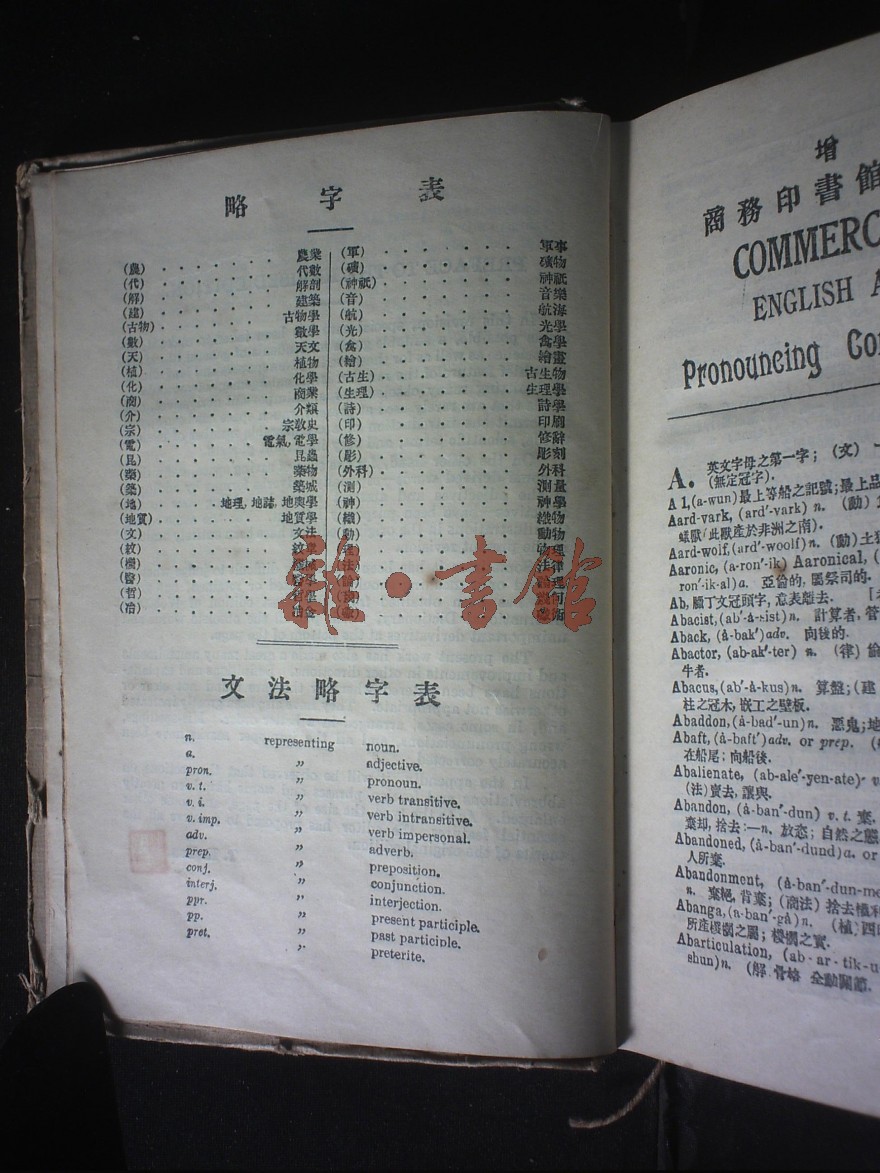 略字表
(農) 農業
(代) 代數
(解) 解剖
(建) 建築
(古物) 古物學
(數) 數學
(天) 天文
(植) 植物
(化) 化學
(商) 商業
(介) 介類
(宗) 宗敎史
(電) 電氣, 電學
(昆) 昆蟲
(藥) 藥物
(築) 築城
(地) 地理, 地誌, 地輿學
(地質) 地質學
(文) 文法
(紋)
(機)
(醫)
(哲)
(冶) 冶金
(軍) 軍事
(礦) 礦物
(神祇) 神祇
(音) 音樂
(航) 航海
(光) 光學
(禽) 禽學
(繪) 繪畫
(古生) 古生物
(生理) 生理學
(詩) 詩學
(印) 印刷
(修) 修辭
(彫) 彫刻
(外科) 外科
(測) 測量
(神) 神學
(織) 織物
(動) 動物
文法略字表
n. representing noun.
a. 〃 adjective.
pron. 〃 pronoun.
v. t. 〃 verb transitive.
v. i. 〃 verb intransitive.
v. imp. 〃 verb impersonal.
adv. 〃 adverb.
prep. 〃 preposition.
conj. 〃 conjunction.
interj. 〃 interjection.
ppr. 〃 present participle.
pp. 〃 past participle.
pret. 〃 preterite.
增
商務印書館
COMMERC
ENGLISH A
Pronouncing Con
A. 英文字母之第一字; (文) 一
(無定冠字).
A 1, (a-wun) 最上等船之記號; 最上品
Aard-vark, (ard'-vark) n. (動)
蟻獸(此獸產於非洲之南).
Aard-wolf, (ard'-woolf) n. (動) 土狼
Aaronic, (a-ron'-ik) Aaronical, (
ron'-ik-al) a. 亞倫的, 屬祭司的.
Ab, 臘丁文冠頭字, 意表離去.
Abacist, (ab'-á-sist) n. 計算者, 管
Aback, (á-bak') adv. 向後的.
Abactor, (ab-ak'-ter) n. (律) 偷
牛者.
Abacus, (ab'-á-kus) n. 算盤; (建
柱之冠木, 嵌工之壁板.
Abaddon, (á-bad'-un) n. 惡鬼; 地
Abaft, (á-baft') adv. or prep. (
在船尾; 向船後.
Abalienate, (ab-ale'-yen-ate) v
(法) 賣去, 讓與.
Abandon, (á-ban'-dun) v. t. 棄,
棄却, 捨去:—n. 放恣; 自然之態
Abandoned, (á-ban'-dund) a. or
人所棄.
Abandonment, (á-ban'-dun-me
n. 棄絕, 背棄; (商法) 捨去權利
Abanga, (a-ban'-gá) n. (植) 西印
所產椶櫚之屬; 椶櫚之實.
Abarticulation, (ab-ar-tik-u
shun) n. (解 骨格 全動關節.
雜·書館